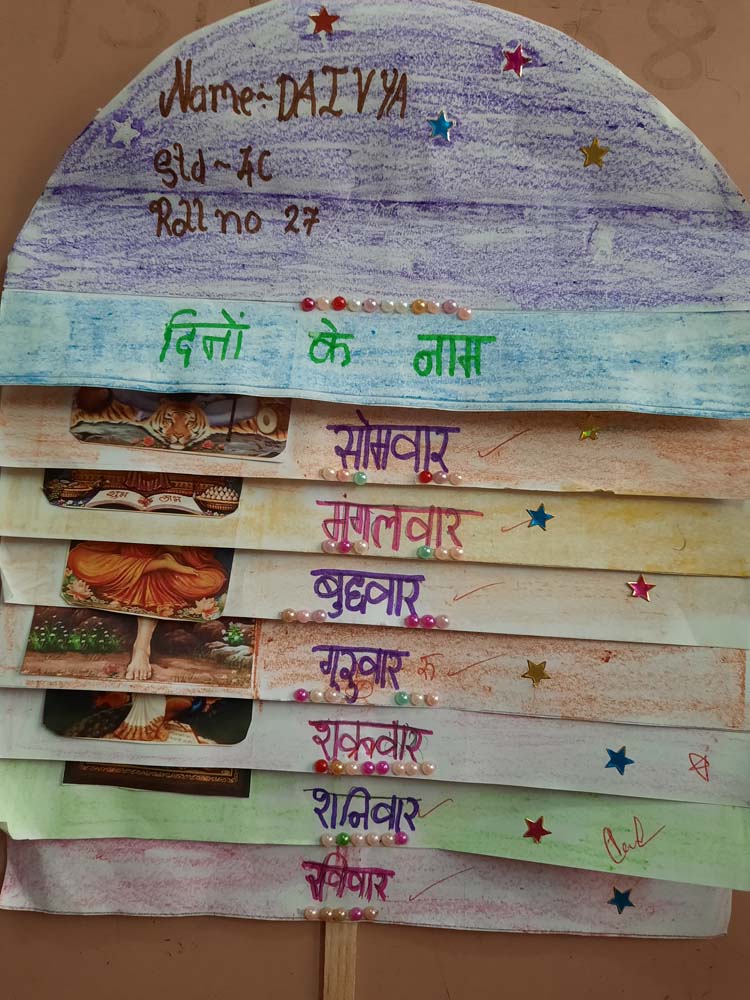 Name~DAIVYA
Std~4C
Roll no 27
दिनों के नाम
सोमवार
शुभ लाभ
मंगलवार
बुधवार
गुरुवार रु
शुक्रवार
शनिवार
रवीवार